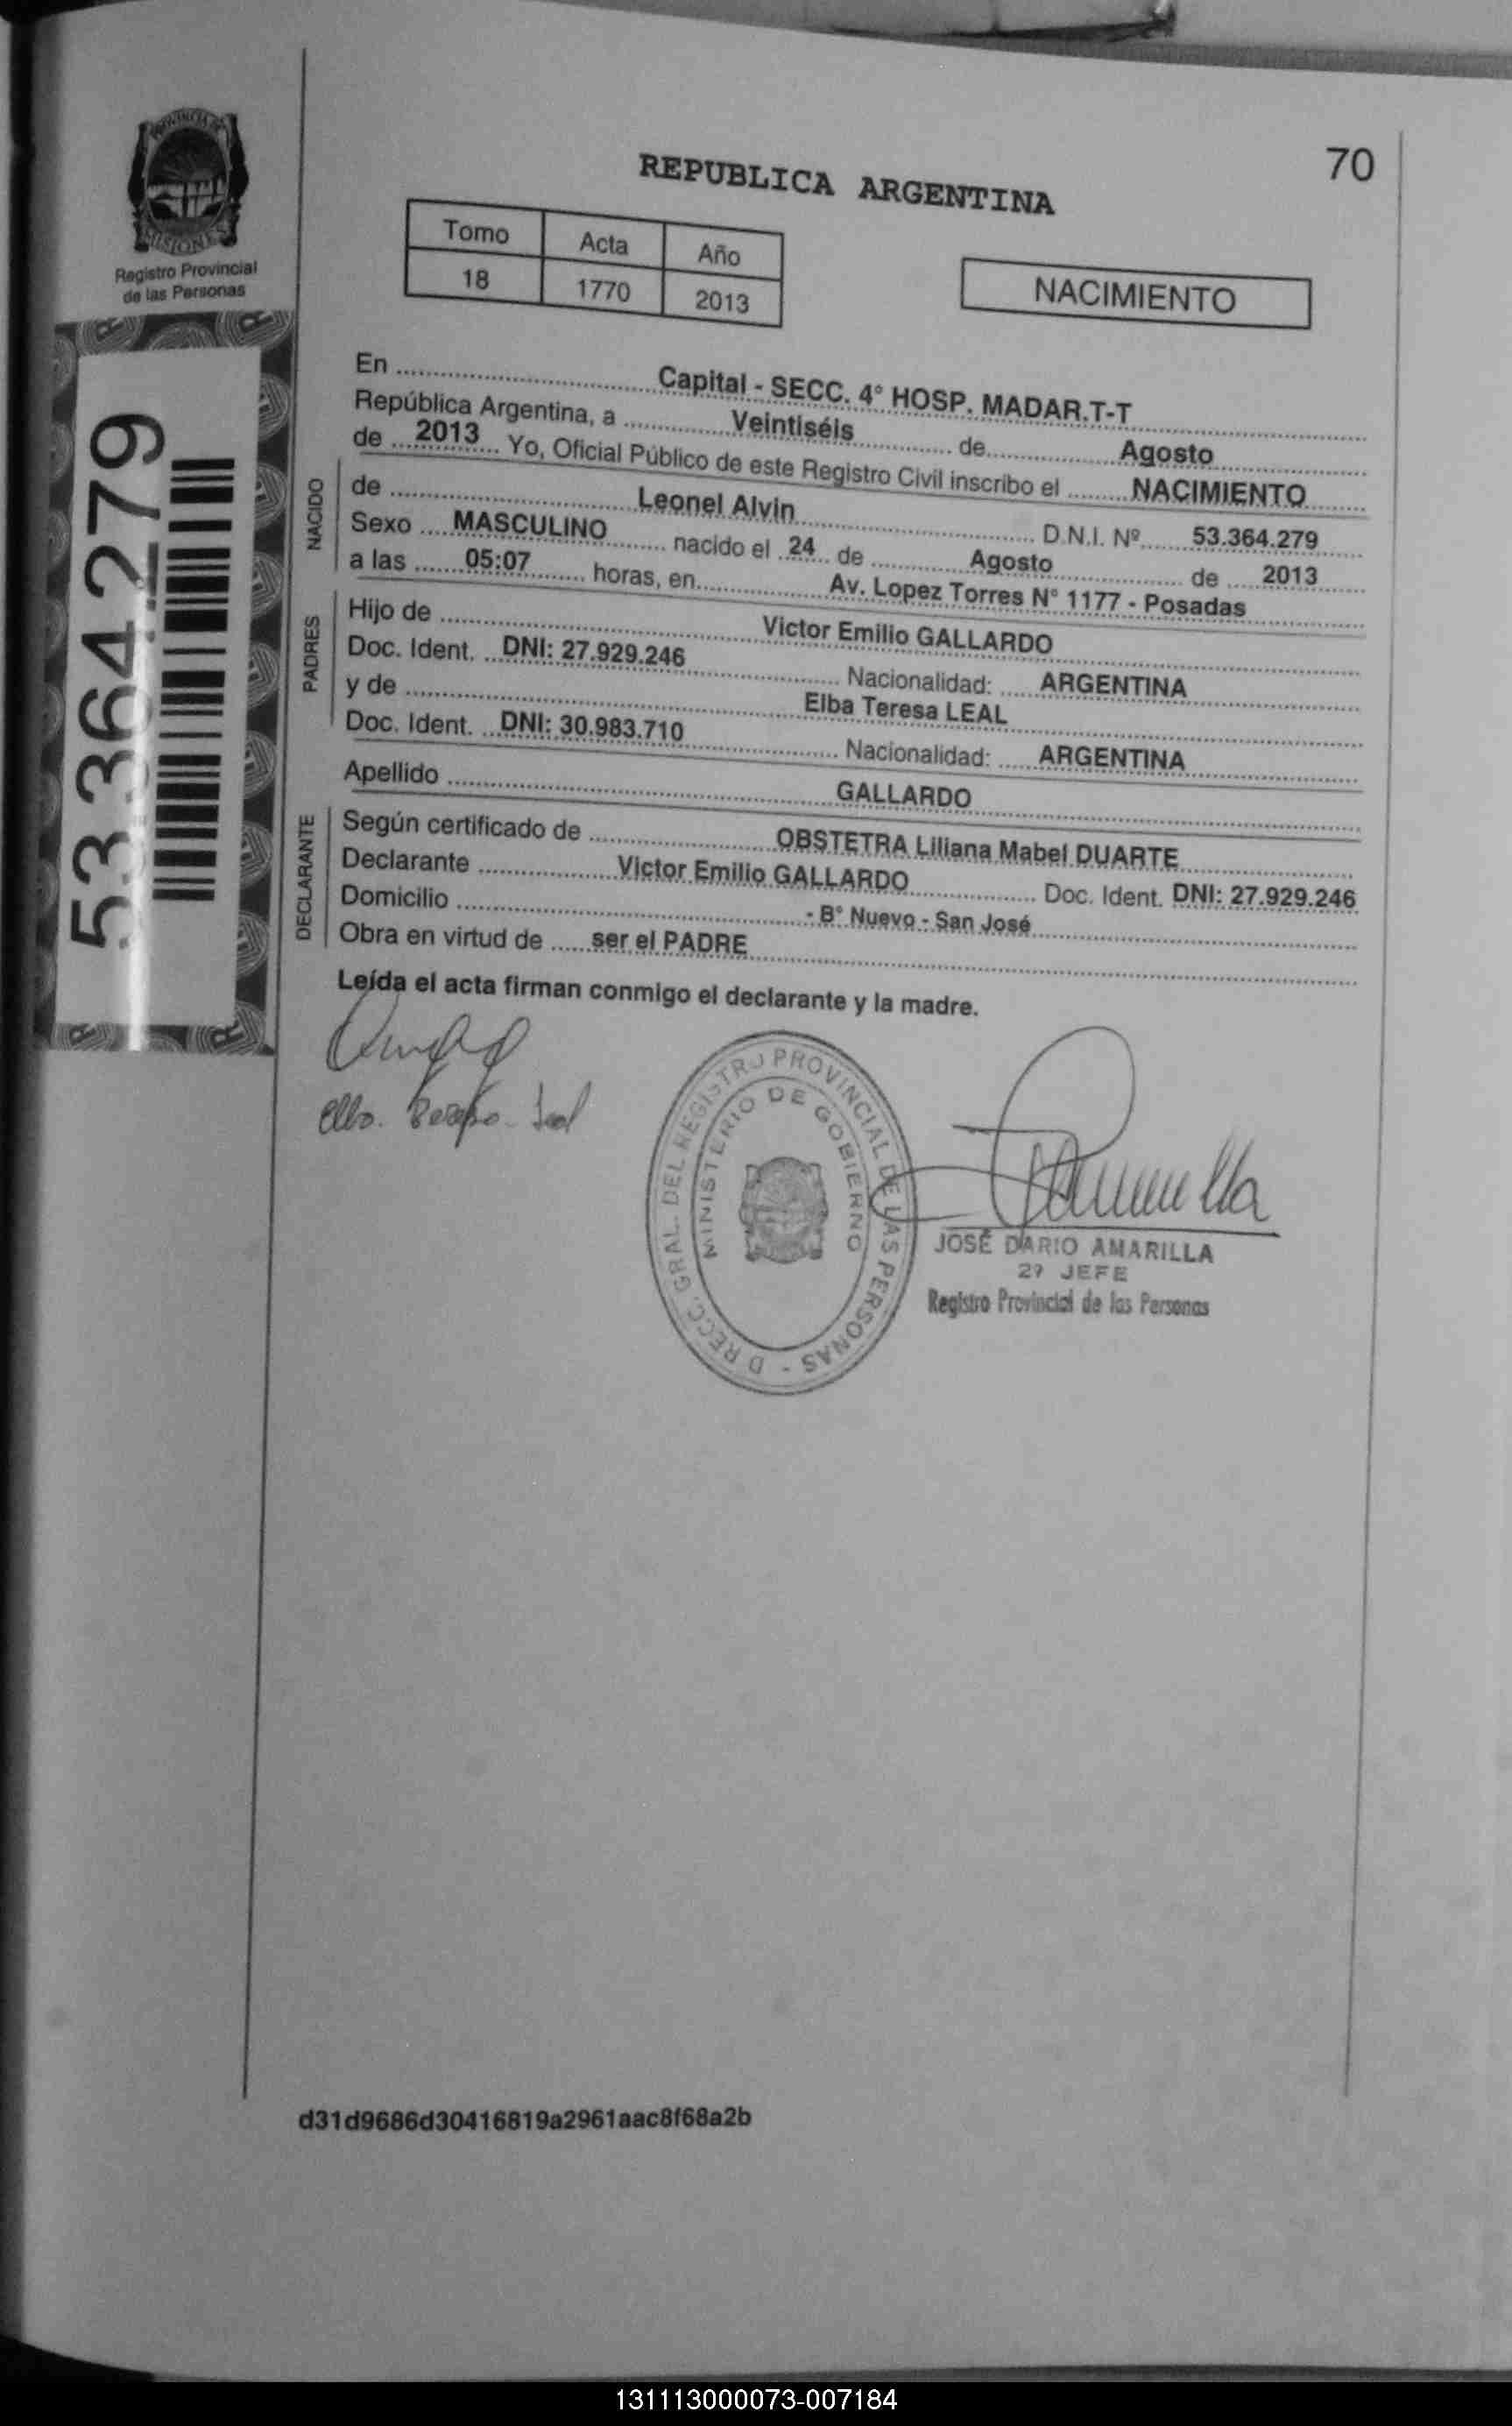 PROVINCIA DE
MISIONES
Registro Provincial
de las Personas
53364279
70
REPUBLICA ARGENTINA
Tomo Acta Año
18 1770 2013
NACIMIENTO
En Capital - SECC. 4° HOSP. MADAR.T-T
República Argentina, a Veintiséis de Agosto
de 2013 Yo, Oficial Público de este Registro Civil inscribo el NACIMIENTO
NACIDO
de Leonel Alvin D.N.I. Nº 53.364.279
Sexo MASCULINO nacido el 24 de Agosto de 2013
a las 05:07 horas, en Av. Lopez Torres N° 1177 - Posadas
PADRES
Hijo de Victor Emilio GALLARDO
Doc. Ident. DNI: 27.929.246 Nacionalidad: ARGENTINA
y de Elba Teresa LEAL
Doc. Ident. DNI: 30.983.710 Nacionalidad: ARGENTINA
Apellido GALLARDO
DECLARANTE
Según certificado de OBSTETRA Liliana Mabel DUARTE
Declarante Victor Emilio GALLARDO Doc. Ident. DNI: 27.929.246
Domicilio - B° Nuevo - San José
Obra en virtud de ser el PADRE
Leída el acta firman conmigo el declarante y la madre.
DIRECC. GRAL. DEL REGISTRO PROVINCIAL DE LAS PERSONAS -
MINISTERIO DE GOBIERNO
JOSÉ DARIO AMARILLA
2º JEFE
Registro Provincial de las Personas
d31d9686d30416819a2961aac8f68a2b
131113000073-007184